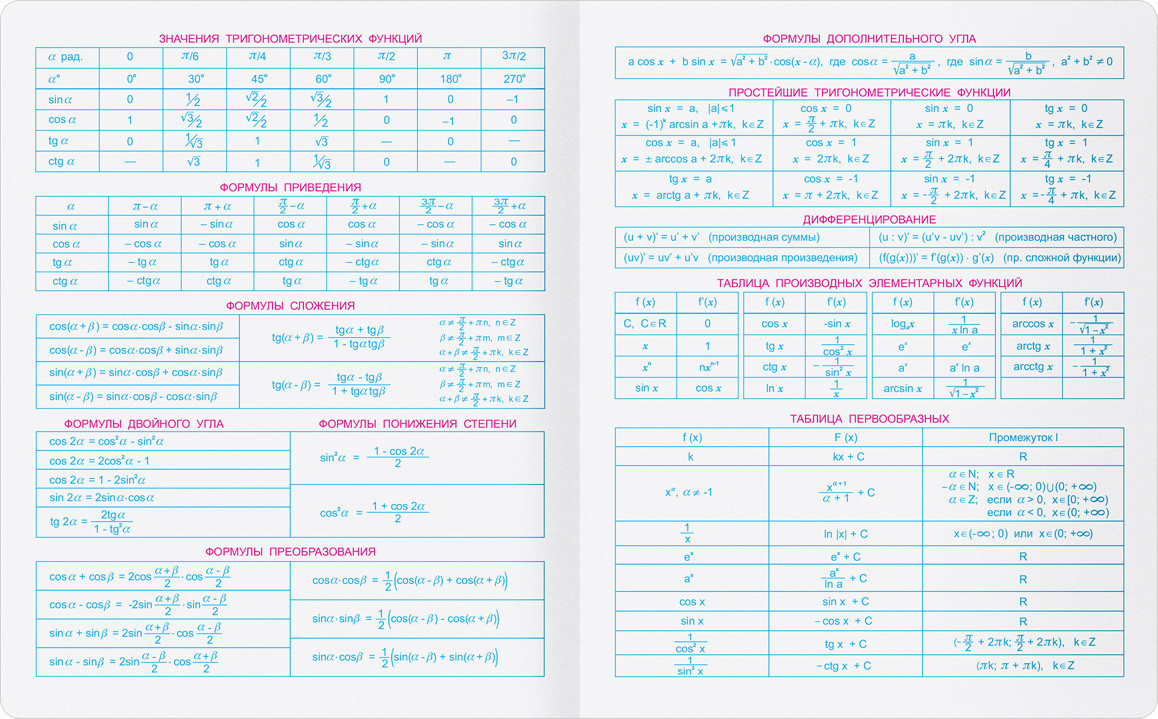 ЗНАЧЕНИЯ ТРИГОНОМЕТРИЧЕСКИХ ФУНКЦИЙ
α рад. 0 π/6 π/4 π/3 π/2 π 3π/2
α° 0° 30° 45° 60° 90° 180° 270°
sin α 0 1/2 √2/2 √3/2 1 0 –1
cos α 1 √3/2 √2/2 1/2 0 –1 0
tg α 0 1/√3 1 √3 — 0 —
ctg α — √3 1 1/√3 0 — 0
ФОРМУЛЫ ПРИВЕДЕНИЯ
α π–α π+α π/2–α π/2+α 3π/2–α 3π/2+α
sin α sin α – sin α cos α cos α – cos α – cos α
cos α – cos α – cos α sin α – sin α – sin α sin α
tg α – tg α tg α ctg α – ctg α ctg α – ctg α
ctg α – ctg α ctg α tg α – tg α tg α – tg α
ФОРМУЛЫ СЛОЖЕНИЯ
cos(α+β) = cosα·cosβ - sinα·sinβ
cos(α-β) = cosα·cosβ + sinα·sinβ
sin(α+β) = sinα·cosβ + cosα·sinβ
sin(α-β) = sinα·cosβ - cosα·sinβ
tg(α+β) = (tgα + tgβ)/(1 - tgαtgβ)
α ≠ π/2 + πn, n∈Z
β ≠ π/2 + πm, m∈Z
α+β ≠ π/2 + πk, k∈Z
tg(α-β) = (tgα - tgβ)/(1 + tgαtgβ)
α ≠ π/2 + πn, n∈Z
β ≠ π/2 + πm, m∈Z
α+β ≠ π/2 + πk, k∈Z
ФОРМУЛЫ ДВОЙНОГО УГЛА
cos 2α = cos²α - sin²α
cos 2α = 2cos²α - 1
cos 2α = 1 - 2sin²α
sin 2α = 2sinα·cosα
tg 2α = 2tgα/(1 - tg²α)
ФОРМУЛЫ ПОНИЖЕНИЯ СТЕПЕНИ
sin²α = (1 - cos 2α)/2
cos²α = (1 + cos 2α)/2
ФОРМУЛЫ ПРЕОБРАЗОВАНИЯ
cosα + cosβ = 2cos (α+β)/2 · cos (α-β)/2
cosα - cosβ = -2sin (α+β)/2 · sin (α-β)/2
sinα + sinβ = 2sin (α+β)/2 · cos (α-β)/2
sinα - sinβ = 2sin (α-β)/2 · cos (α+β)/2
cosα·cosβ = 1/2 (cos(α-β) + cos(α+β))
sinα·sinβ = 1/2 (cos(α-β) - cos(α+β))
sinα·cosβ = 1/2 (sin(α-β) + sin(α+β))
ФОРМУЛЫ ДОПОЛНИТЕЛЬНОГО УГЛА
a cos x + b sin x = √(a² + b²)·cos(x - α), где cosα = a/√(a² + b²), где sinα = b/√(a² + b²), a² + b² ≠ 0
ПРОСТЕЙШИЕ ТРИГОНОМЕТРИЧЕСКИЕ ФУНКЦИИ
sin x = a, |a|⩽1 cos x = 0 sin x = 0 tg x = 0
x = (-1)ᵏ arcsin a + πk, k∈Z x = π/2 + πk, k∈Z x = πk, k∈Z x = πk, k∈Z
cos x = a, |a|⩽1 cos x = 1 sin x = 1 tg x = 1
x = ± arccos a + 2πk, k∈Z x = 2πk, k∈Z x = π/2 + 2πk, k∈Z x = π/4 + πk, k∈Z
tg x = a cos x = -1 sin x = -1 tg x = -1
x = arctg a + πk, k∈Z x = π + 2πk, k∈Z x = -π/2 + 2πk, k∈Z x = -π/4 + πk, k∈Z
ДИФФЕРЕНЦИРОВАНИЕ
(u + v)' = u' + v' (производная суммы) (u : v)' = (u'v - uv') : v² (производная частного)
(uv)' = uv' + u'v (производная произведения) (f(g(x)))' = f'(g(x)) · g'(x) (пр. сложной функции)
ТАБЛИЦА ПРОИЗВОДНЫХ ЭЛЕМЕНТАРНЫХ ФУНКЦИЙ
f (x) f'(x) f (x) f'(x) f (x) f'(x) f (x) f'(x)
C, C∈R 0 cos x -sin x logₐx 1/(x ln a) arccos x -1/√(1-x²)
x 1 tg x 1/cos² x eˣ eˣ arctg x 1/(1+x²)
xⁿ nxⁿ⁻¹ ctg x -1/sin² x aˣ aˣ ln a arcctg x -1/(1+x²)
sin x cos x ln x 1/x arcsin x 1/√(1-x²)
ТАБЛИЦА ПЕРВООБРАЗНЫХ
f (x) F (x) Промежуток I
k kx + C R
x^α, α ≠ -1 x^(α+1)/(α+1) + C
α∈N; x∈R
-α∈N; x∈(-∞; 0)∪(0; +∞)
α∈Z; если α > 0, x∈[0; +∞)
если α < 0, x∈(0; +∞)
1/x ln |x| + C x∈(-∞; 0) или x∈(0; +∞)
eˣ eˣ + C R
aˣ aˣ/ln a + C R
cos x sin x + C R
sin x – cos x + C R
1/cos² x tg x + C (-π/2 + 2πk; π/2 + 2πk), k∈Z
1/sin² x – ctg x + C (πk; π + πk), k∈Z